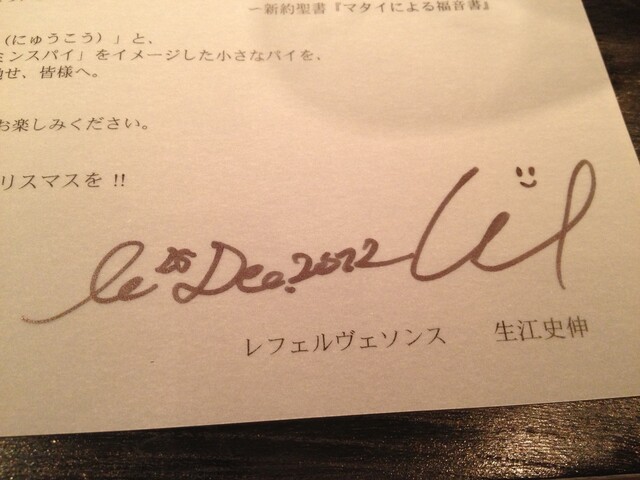 －新約聖書『マタイによる福音書』
（にゅうこう）」と、
ミンスパイ」をイメージした小さなパイを、
せ、皆様へ。
お楽しみください。
リスマスを !!
le 25 Dec. 2012
レフェルヴェソンス 生江史伸